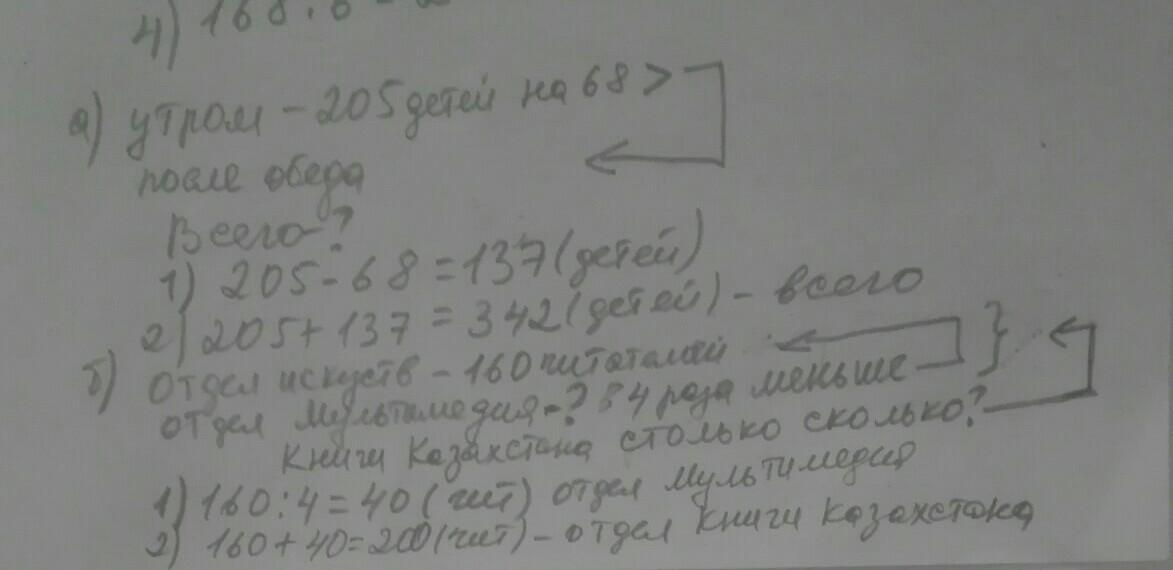 4) 168:6
а) утром – 205 детей на 68 >
после обеда
Всего-?
1) 205-68=137(детей)
2) 205+137=342(детей) – всего
б) Отдел искуств – 160 читателей
отдел мультимедия-? в 4 раза меньше
Книги Казахстана столько сколько?
1) 160:4=40 (чит) отдел мультимедия
2) 160+40=200(чит) – отдел Книги Казахстана